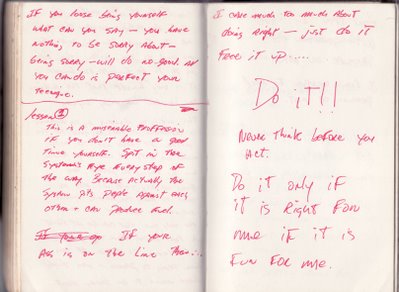 If you loose being yourself
what can you say — you have
nothing to be sorry about —
being sorry — will do no good. All
you can do is perfect your
lesson ②
This is a miserable proffession
if you don't have a good
time yourself. Spit in the
Systems eye every step of
the way. Because actually the
System pits people against each
other + can produce evil.
If your
If your
Ass is on the line then...
I care much too much about
doing right — just do it
Free it up.....
Do it!!
Never think before you
act.
Do it only if
it is right for
me if it is
fun for me.